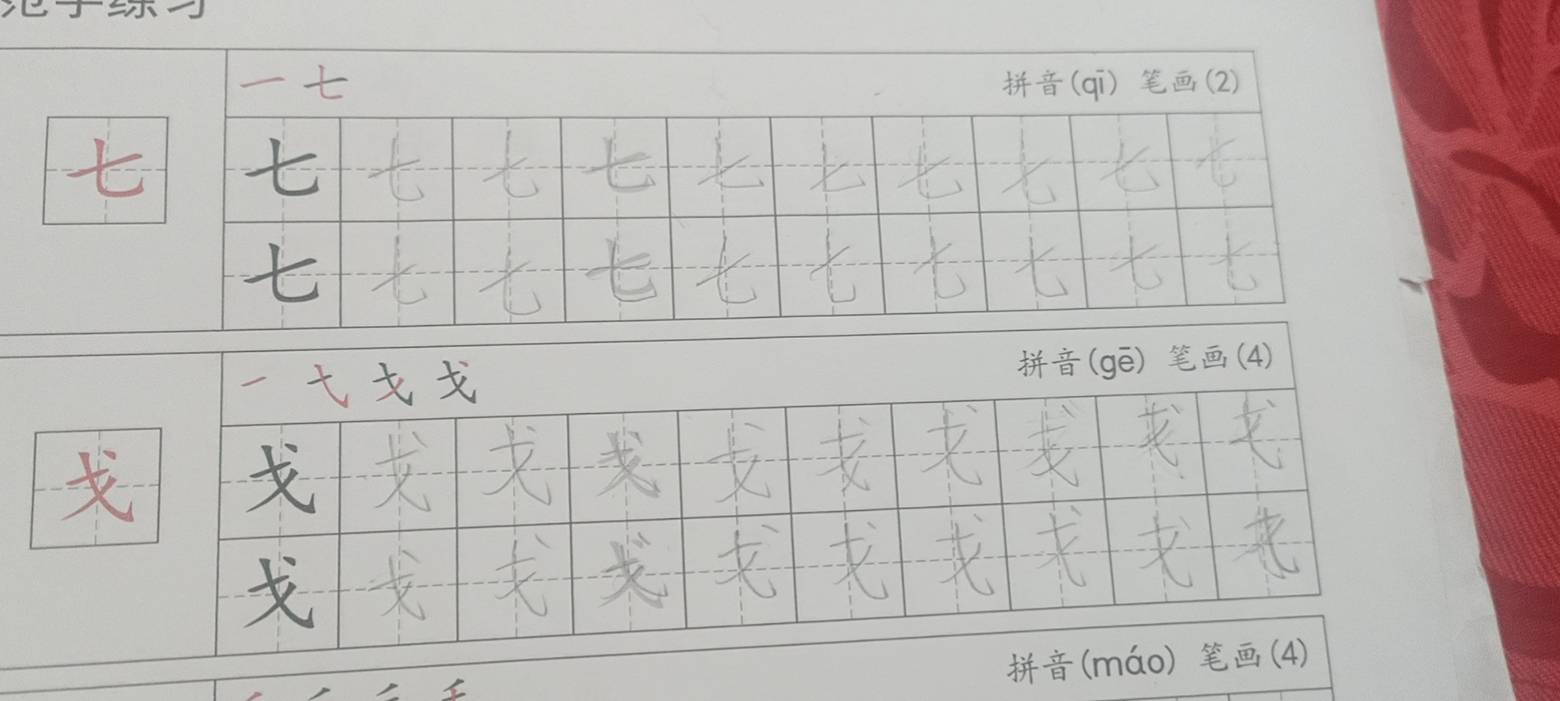 范字练习
一 七 拼音(qī) 笔画(2)
七 七 七 七 七 七 七 七 七 七 七
七 七 七 七 七 七 七 七 七 七
拼音(gē) 笔画(4)
戈 戈 戈 戈 戈 戈 戈 戈 戈 戈 戈
戈 戈 戈 戈 戈 戈 戈 戈 戈 戈
拼音(máo) 笔画(4)